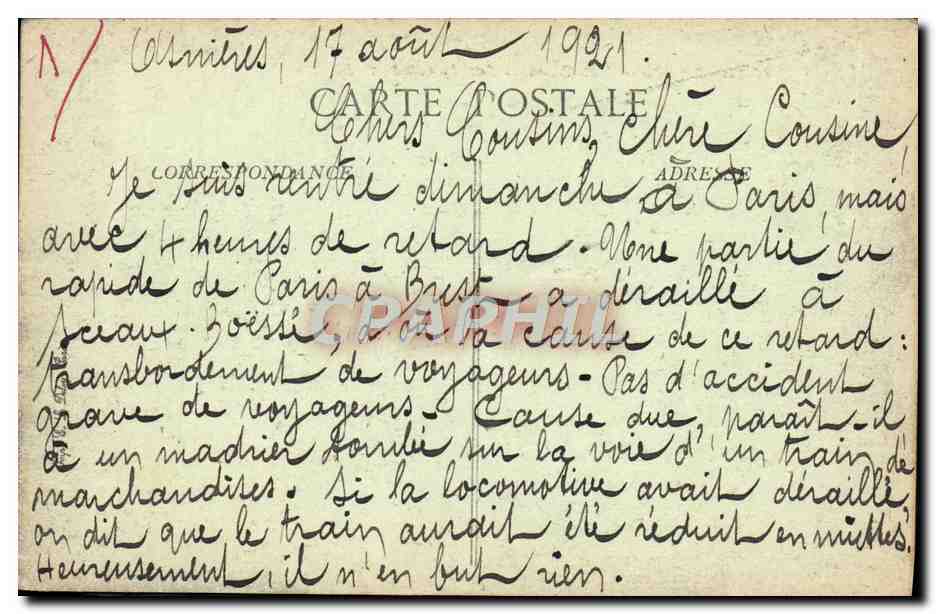 Asnières, 17 août 1921.
CARTE POSTALE
Chers Cousins, chère Cousine,
CORRESPONDANCE
ADRESSE
Je suis rentré dimanche à Paris, mais
avec 4 heures de retard. Une partie du
rapide de Paris à Brest a déraillé à
Sceaux-Boëssé, d'où la cause de ce retard :
CPARHTI
transbordement de voyageurs - Pas d'accident
grave de voyageurs - Cause due, paraît-il
à un madrier tombé sur la voie d'un train de
marchandises. Si la locomotive avait déraillé,
on dit que le train aurait été réduit en miettes.
Heureusement, il n'en fut rien.